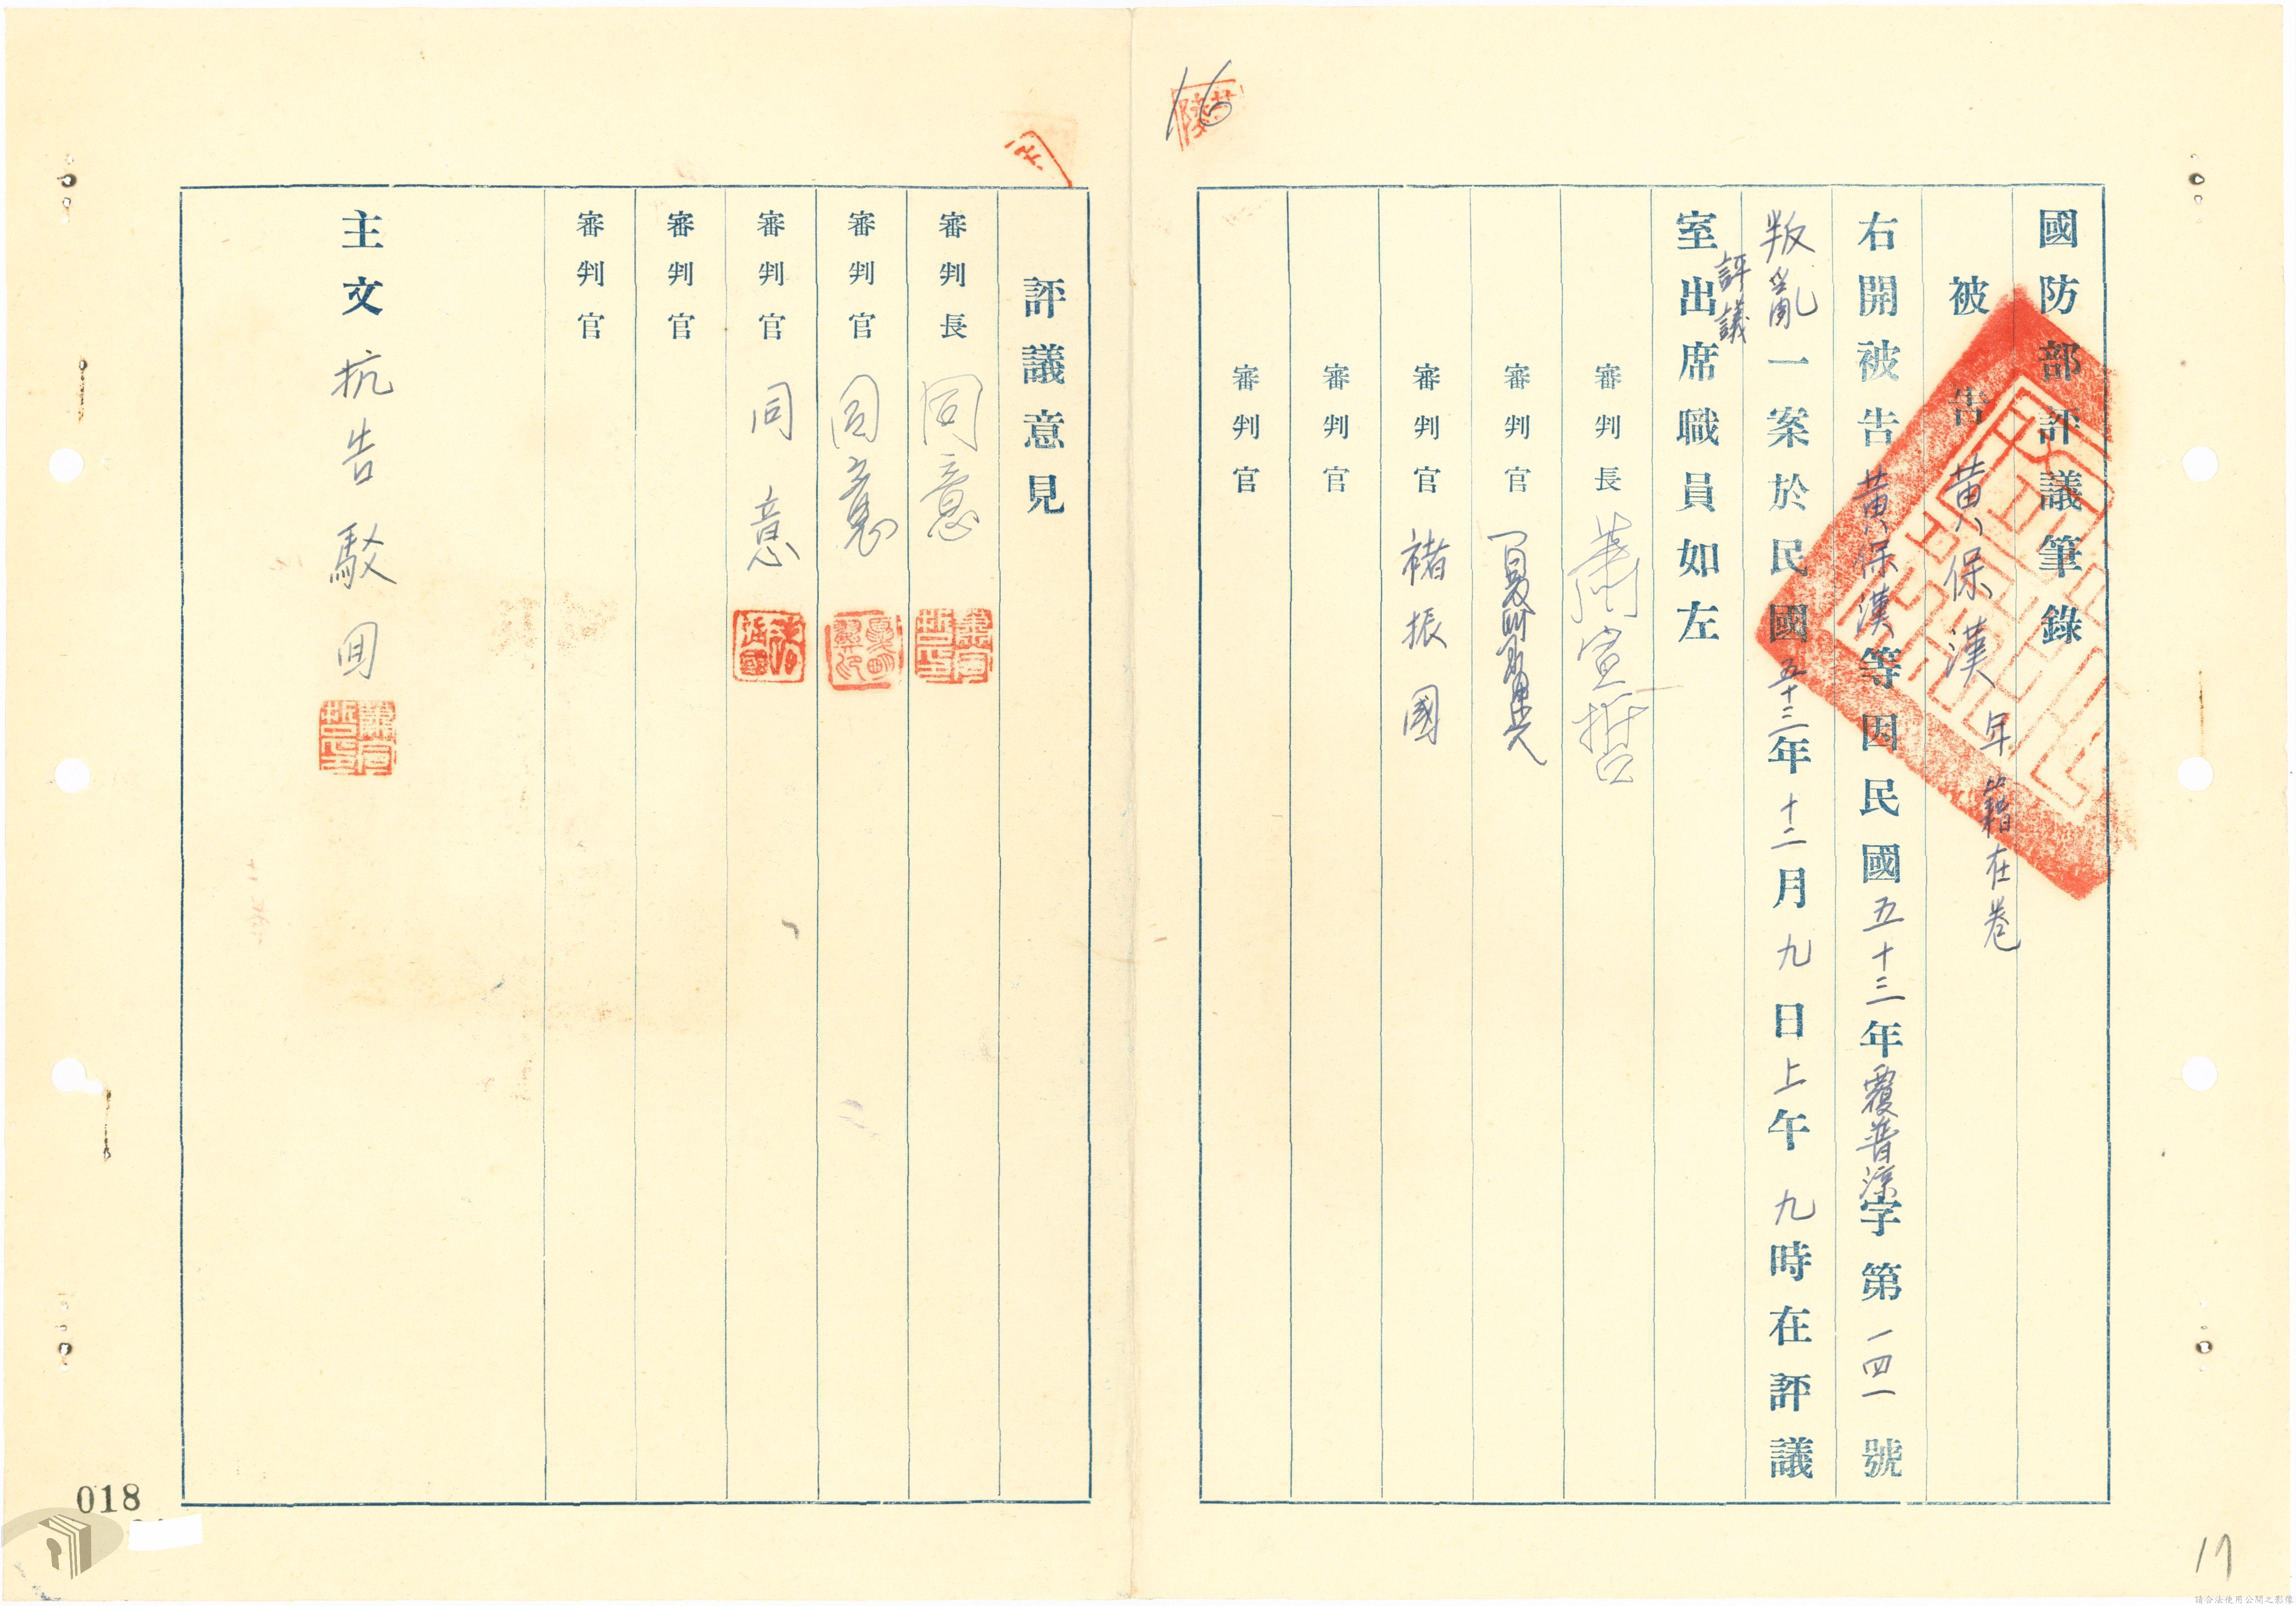 16
國防部評議筆錄
被告黃保漢年籍在卷
右開被告黃保漢等因民國五十三年覆普淙字第一四一號
叛亂一案於民國五十三年十二月九日上午九時在評議
評議
室出席職員如左
審判長蕭宣哲
審判官
審判官褚振國
審判官
審判官
評議意見
審判長同意
審判官同意
審判官同意
審判官
審判官
主文抗告駁回
018
17
請合法使用公開之影像